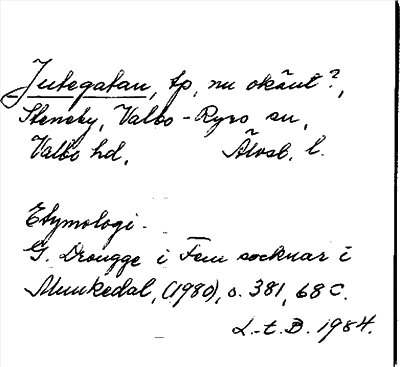 Jutegatan, tp, nu okänt?,
Steneby, Valbo-Ryrs sn,
Valbo hd, Älvsb. l.
Etymologi.
G. Drougge i Fem socknar i
Munkedal, (1980), s. 381, 68 C.
L-t. B. 1984.